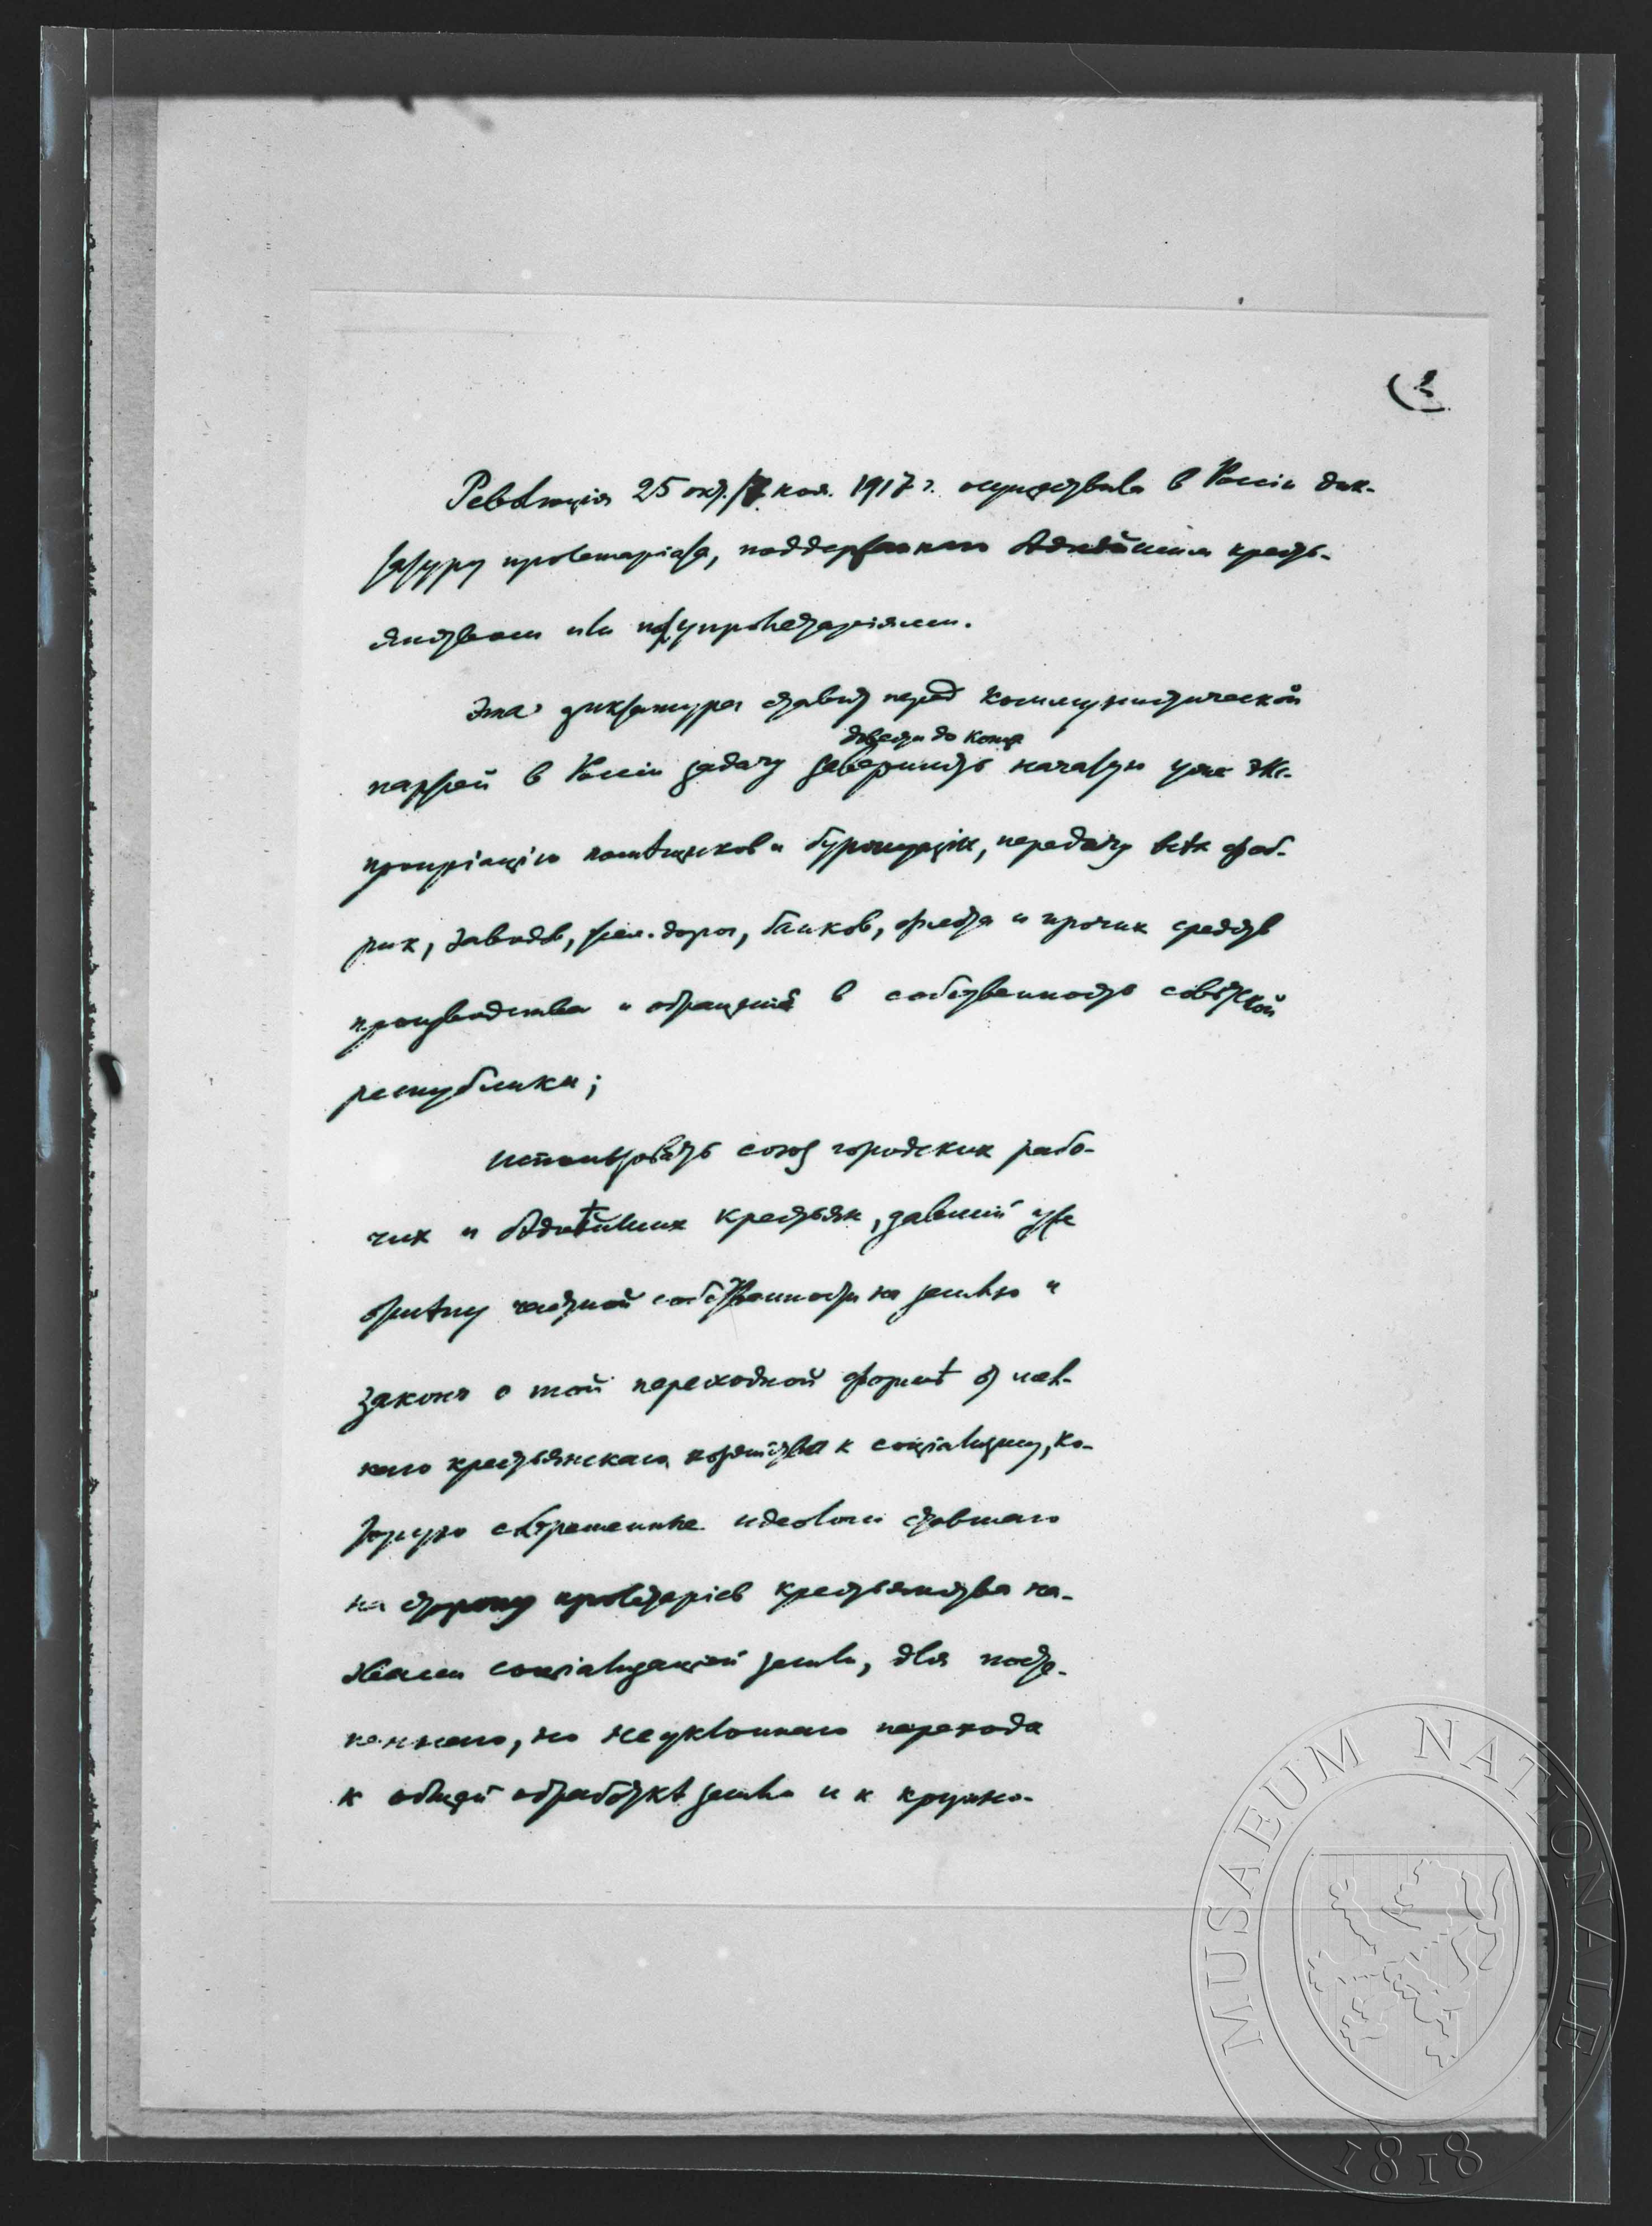 2
Революція 25 окт./7 ноя. 1917 г. осуществила в Россіи дик-
татуру пролетаріата, поддержанного бѣднѣйшим кресть-
янством или полупролетаріями.
Эта диктатура ставит перед коммунистической
довести до конца
партіей в Россіи задачу завершить начатую уже экс-
пропріацію помѣщиков и буржуазіи, передачу всѣх фаб-
рик, заводов, жел. дорог, банков, флота и прочих средств
производства и обращенія в собственность совѣтской
республики;
использовать союз городских рабо-
чих и бѣднѣйших крестьян, давшій уже
отмѣну частной собственности на землю и
закон о той переходной формѣ от мел-
кого крестьянскаго хозяйства к соціализму, ко-
торую современные идеологи ставшаго
на сторону пролетаріев крестьянства на-
звали соціализаціей земли, для посте-
пеннаго, но неуклоннаго перехода
к общей обработкѣ земли и к крупно-
MUSAEUM NATIONALE
1818